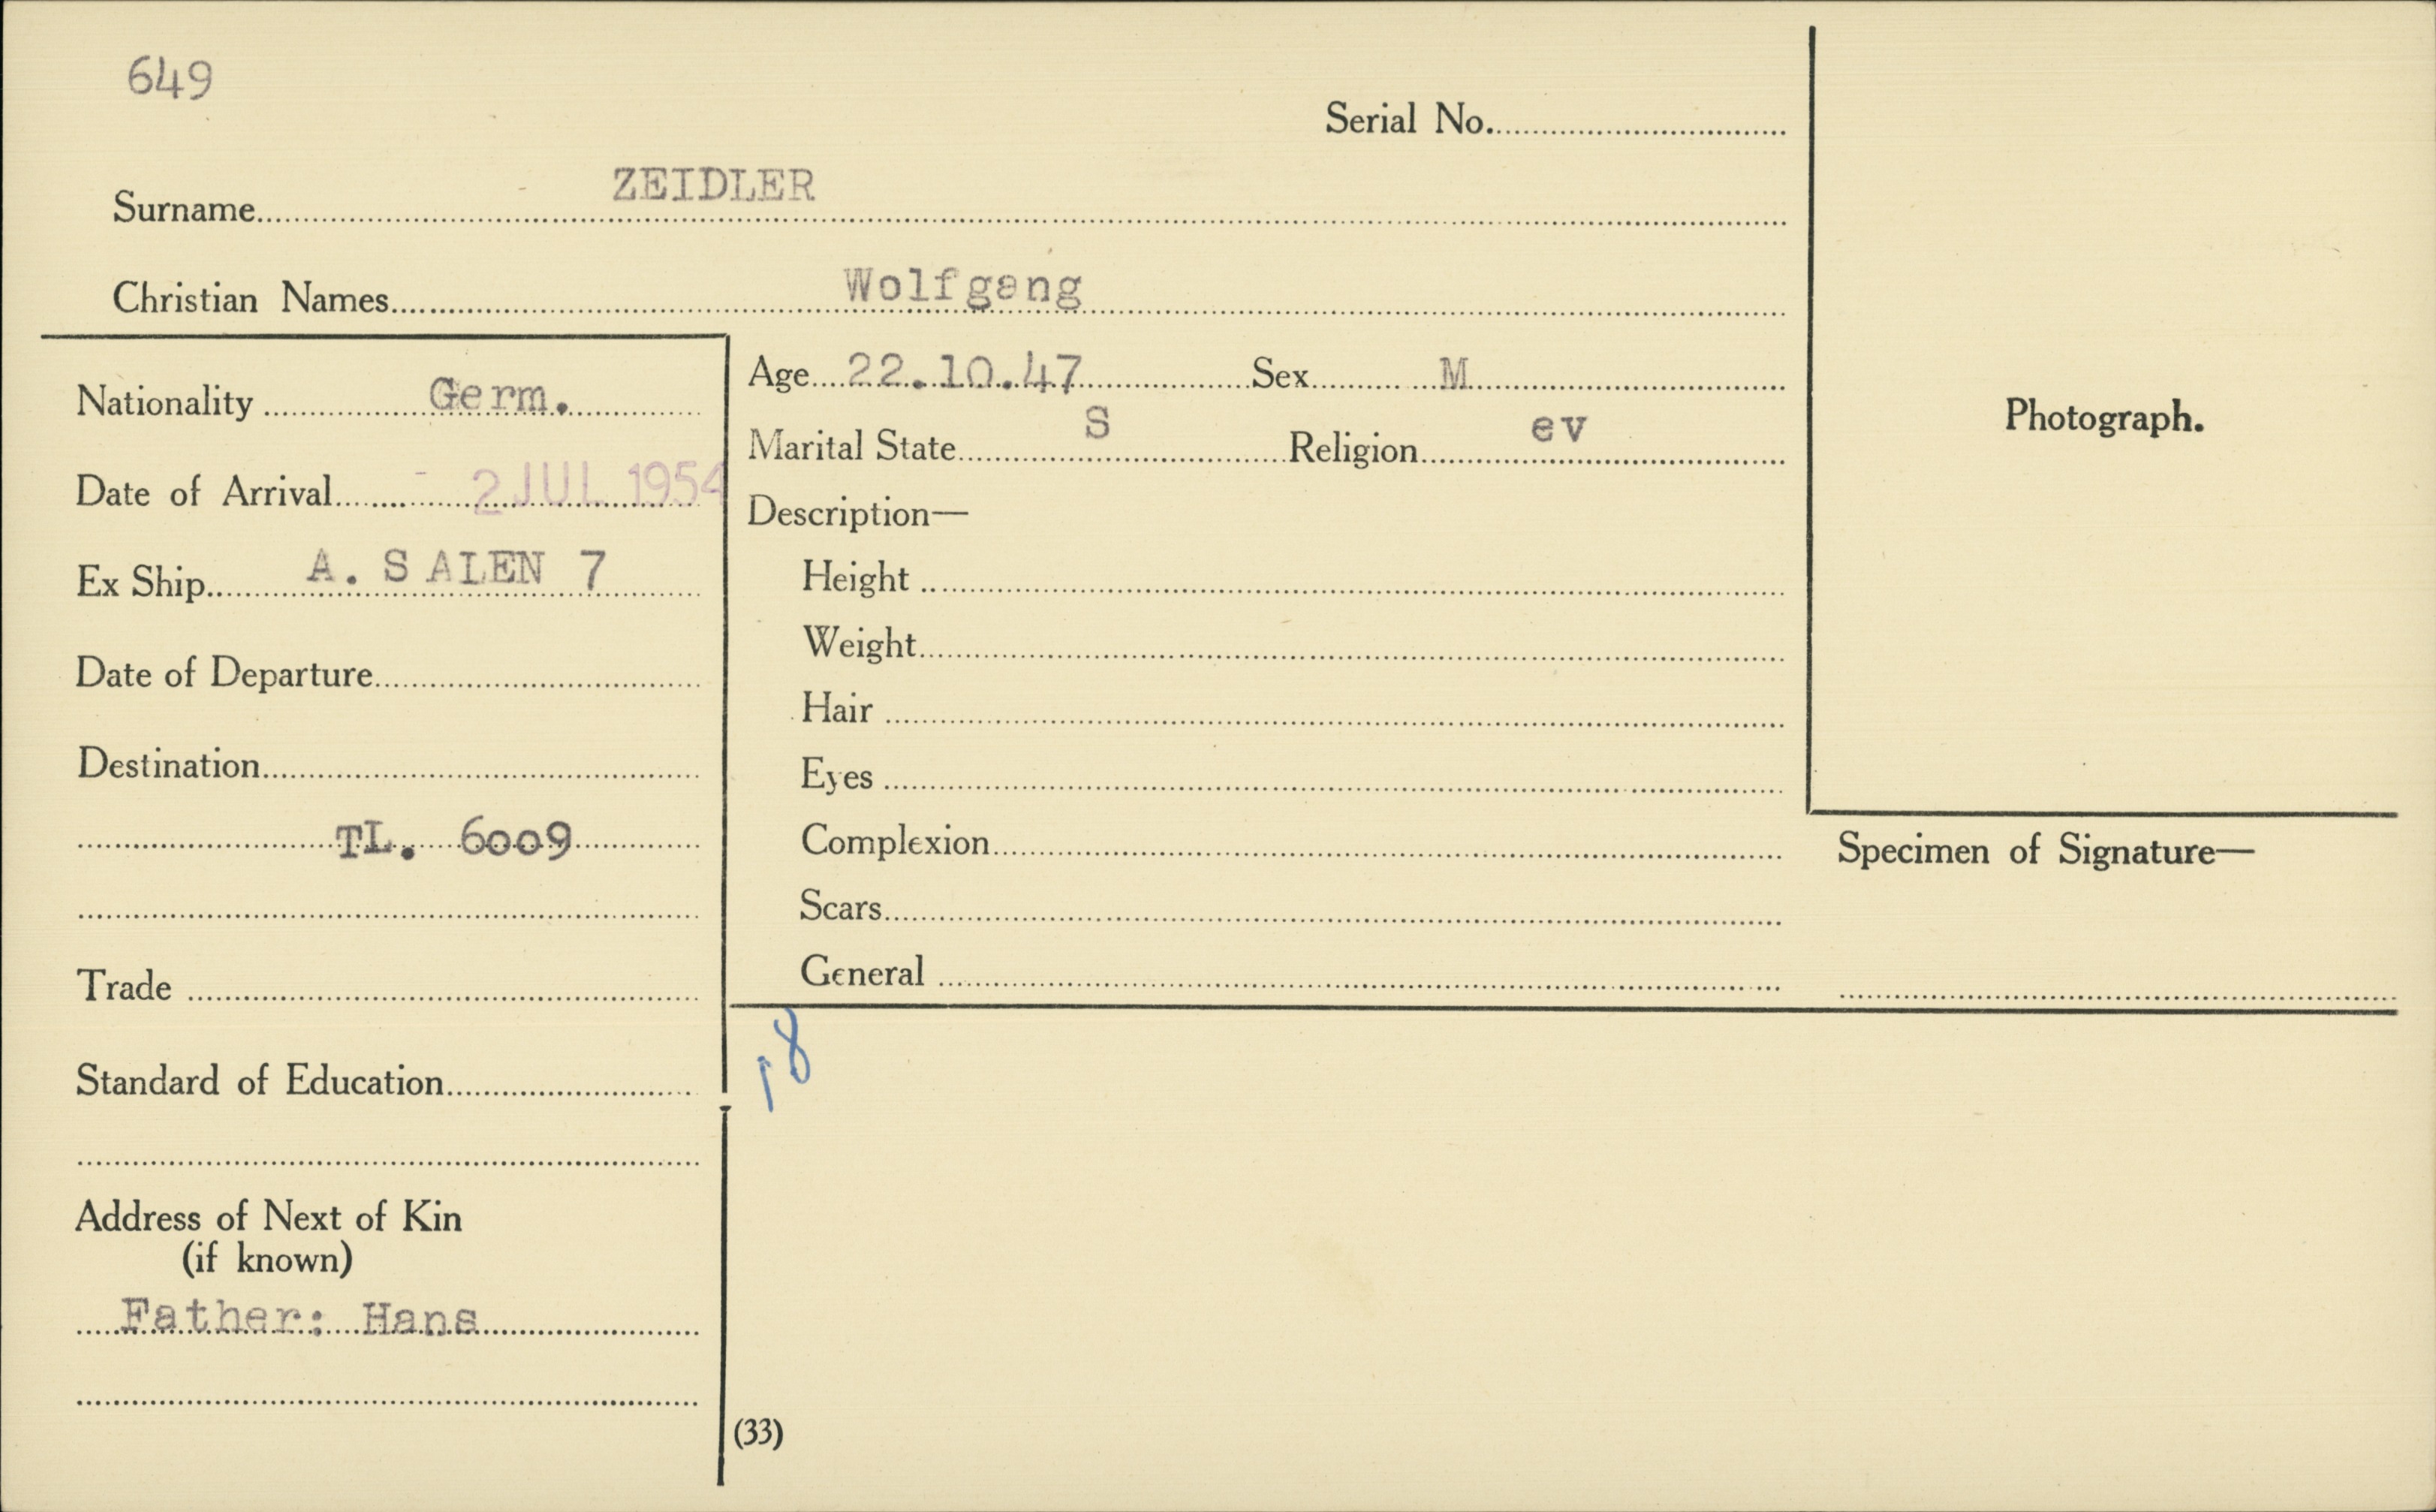 649
Serial No.
Surname ZEIDLER
Christian Names Wolfgang
Nationality Germ.
Date of Arrival - 2 JUL 1954
Ex Ship A. SALEN 7
Date of Departure
Destination
TL. 6009
Trade
Standard of Education
Address of Next of Kin
(if known)
Father: Hans
Age 22.10.47 Sex M
Marital State S Religion ev
Description—
Height
Weight
Hair
Eyes
Complexion
Scars
General
18
(33)
Photograph.
Specimen of Signature—